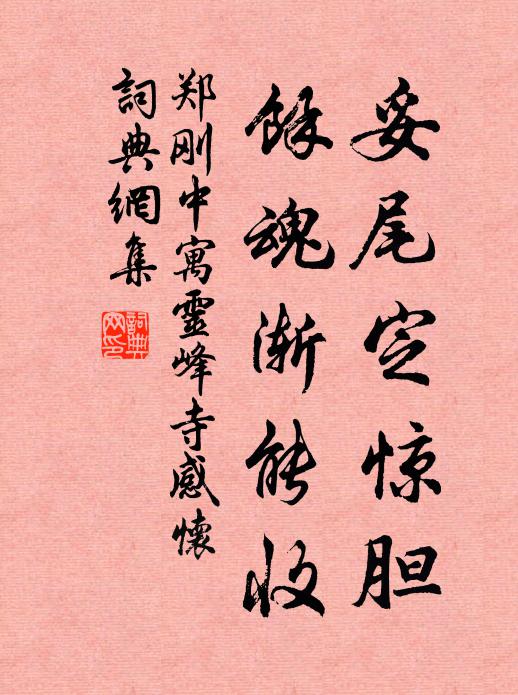 妥尾定惊胆
餘魂渐能收
郑刚中寓靈峰寺感懷
詞典網集
詞典網印